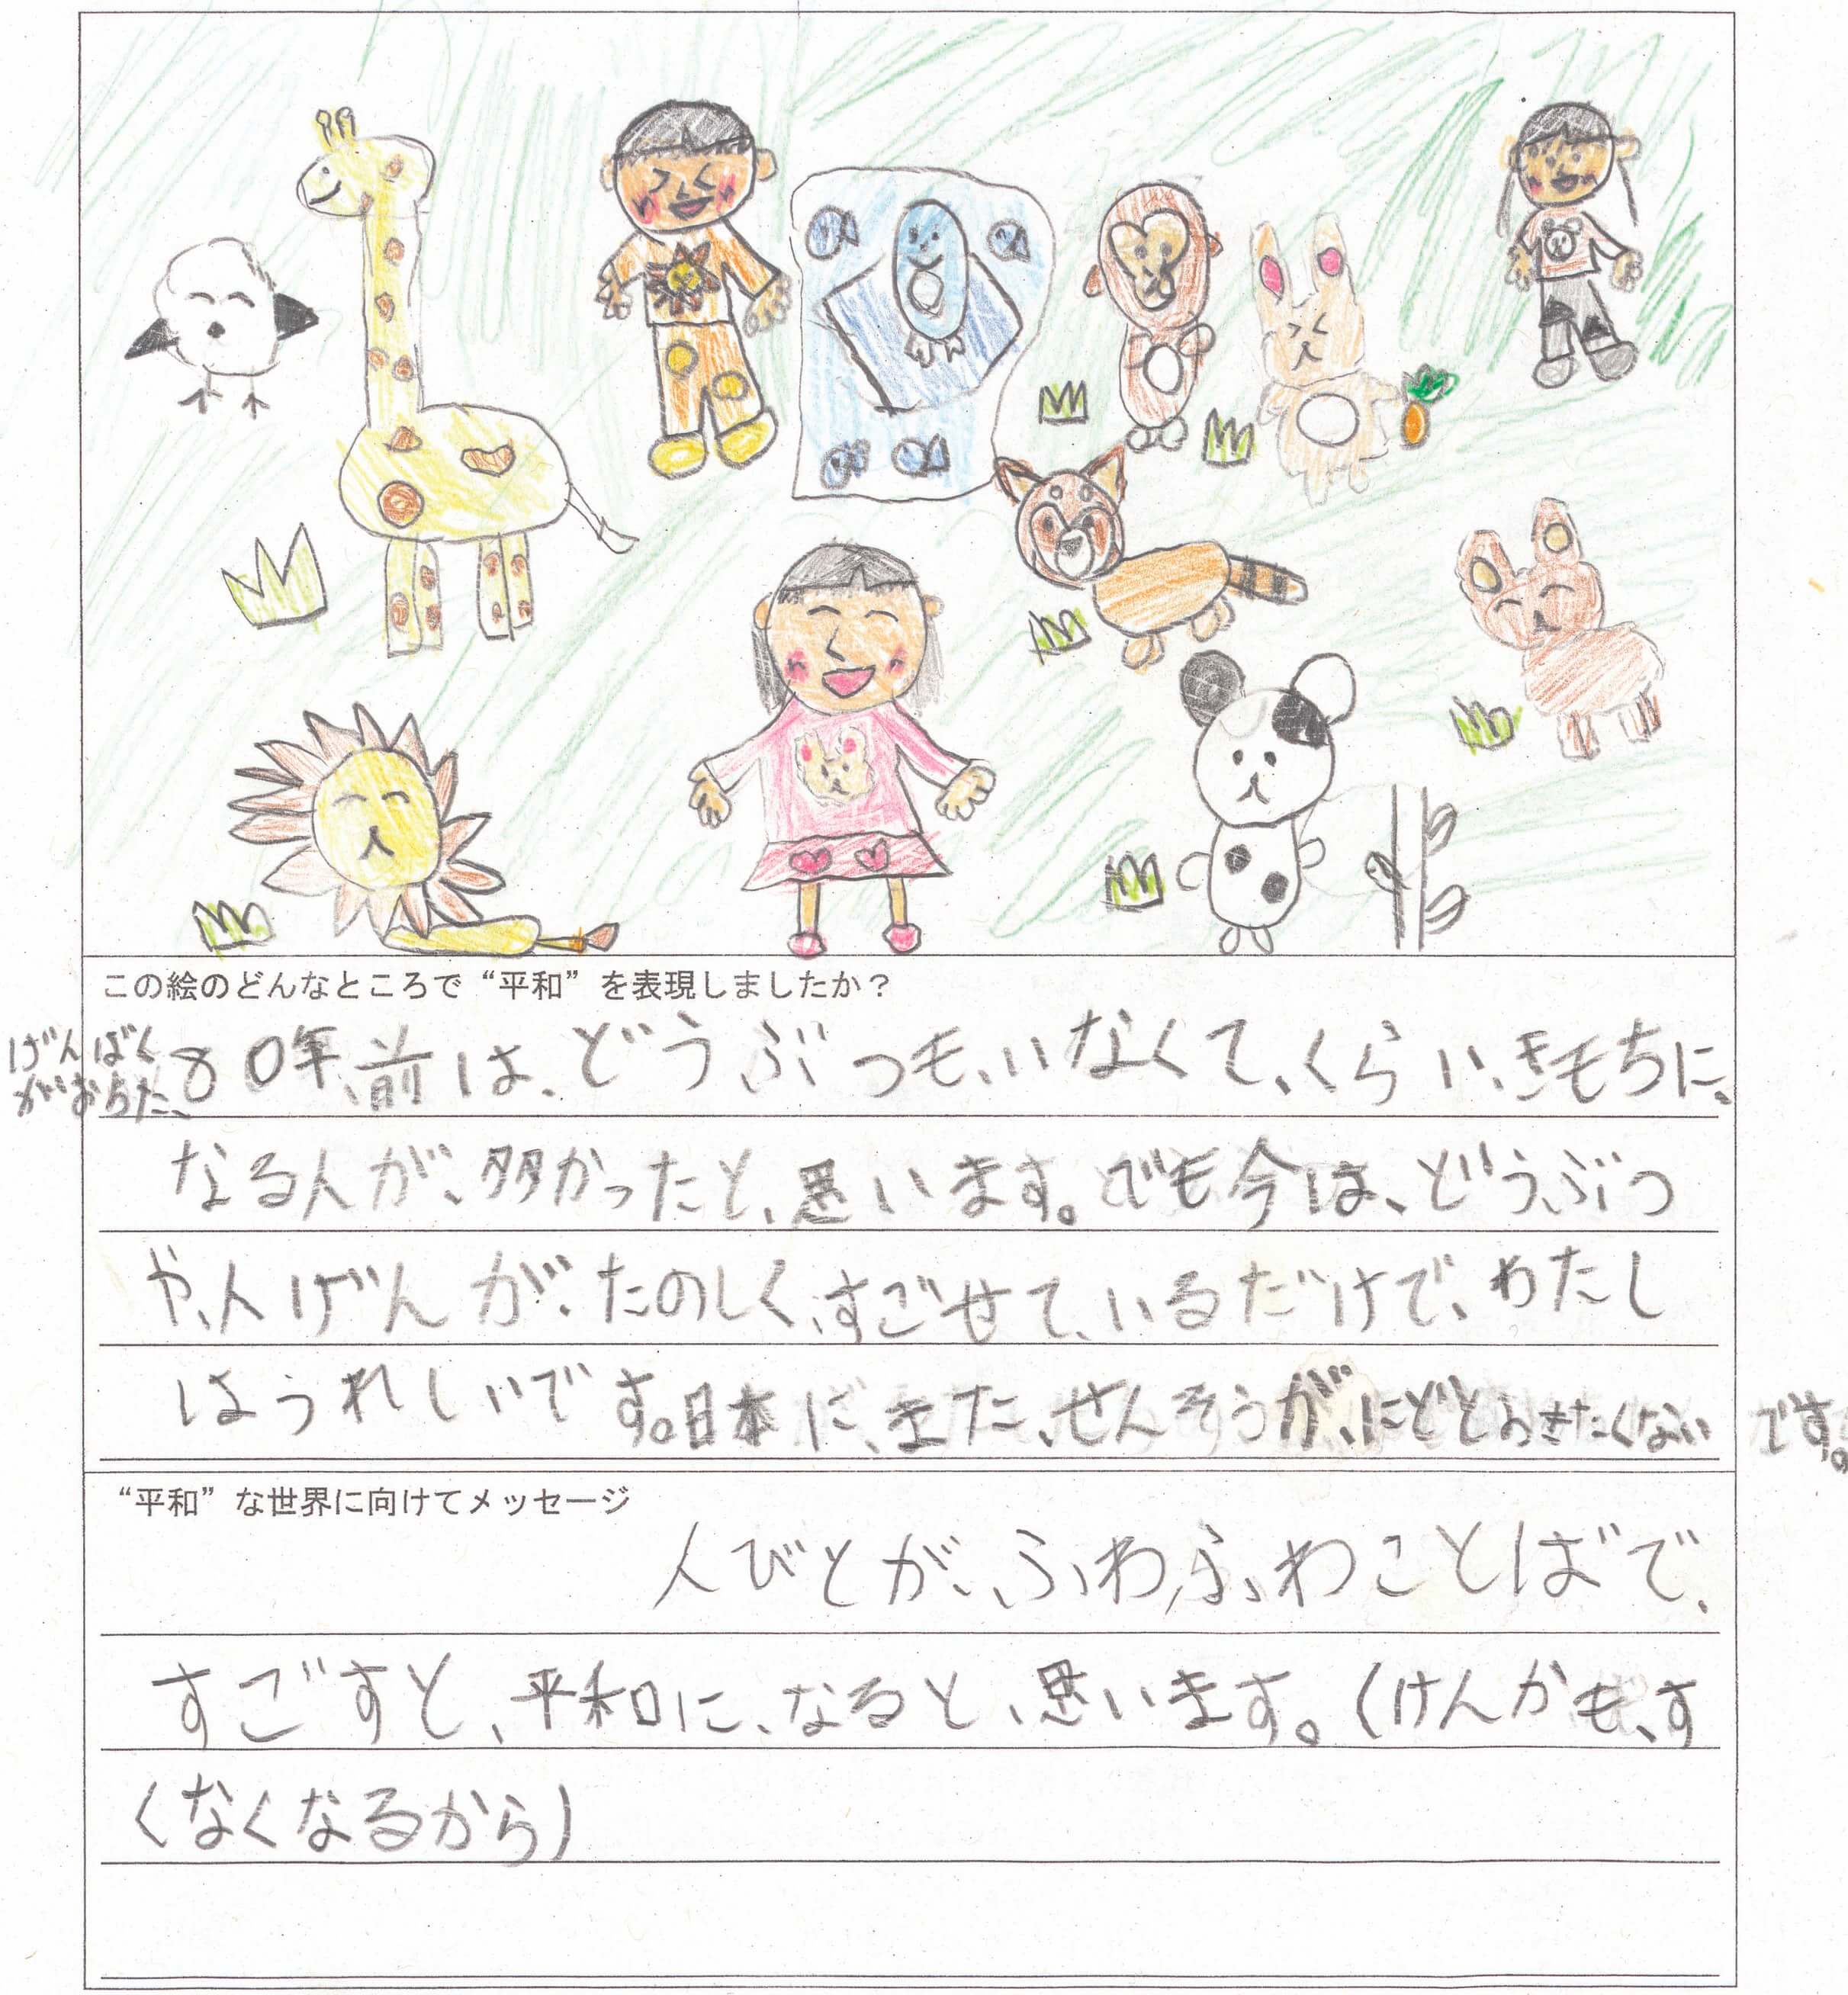 この絵のどんなところで“平和”を表現しましたか？
げんばく
がおちた、80年、前は、どうぶつも、いなくて、くらい、きもちに、
なる人が、多かったと、思います。でも今は、どうぶつ
や、人げんが、たのしく、すごせて、いるだけで、わたし
はうれしいです。日本に、きた、せんそうが、にどとおきたくないです。
“平和”な世界に向けてメッセージ
人びとが、ふわふわことばで、
すごすと、平和に、なると、思います。(けんかも、す
くなくなるから)